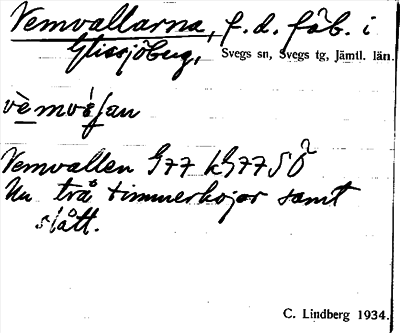 Vemvallarna, f.d. fäb. i
Glissjöberg, Svegs sn, Svegs tg, Jämtl. län.
Vemvallen G77 kG77SÖ
Nu två timmerkojor samt
slått.
C. Lindberg 1934.